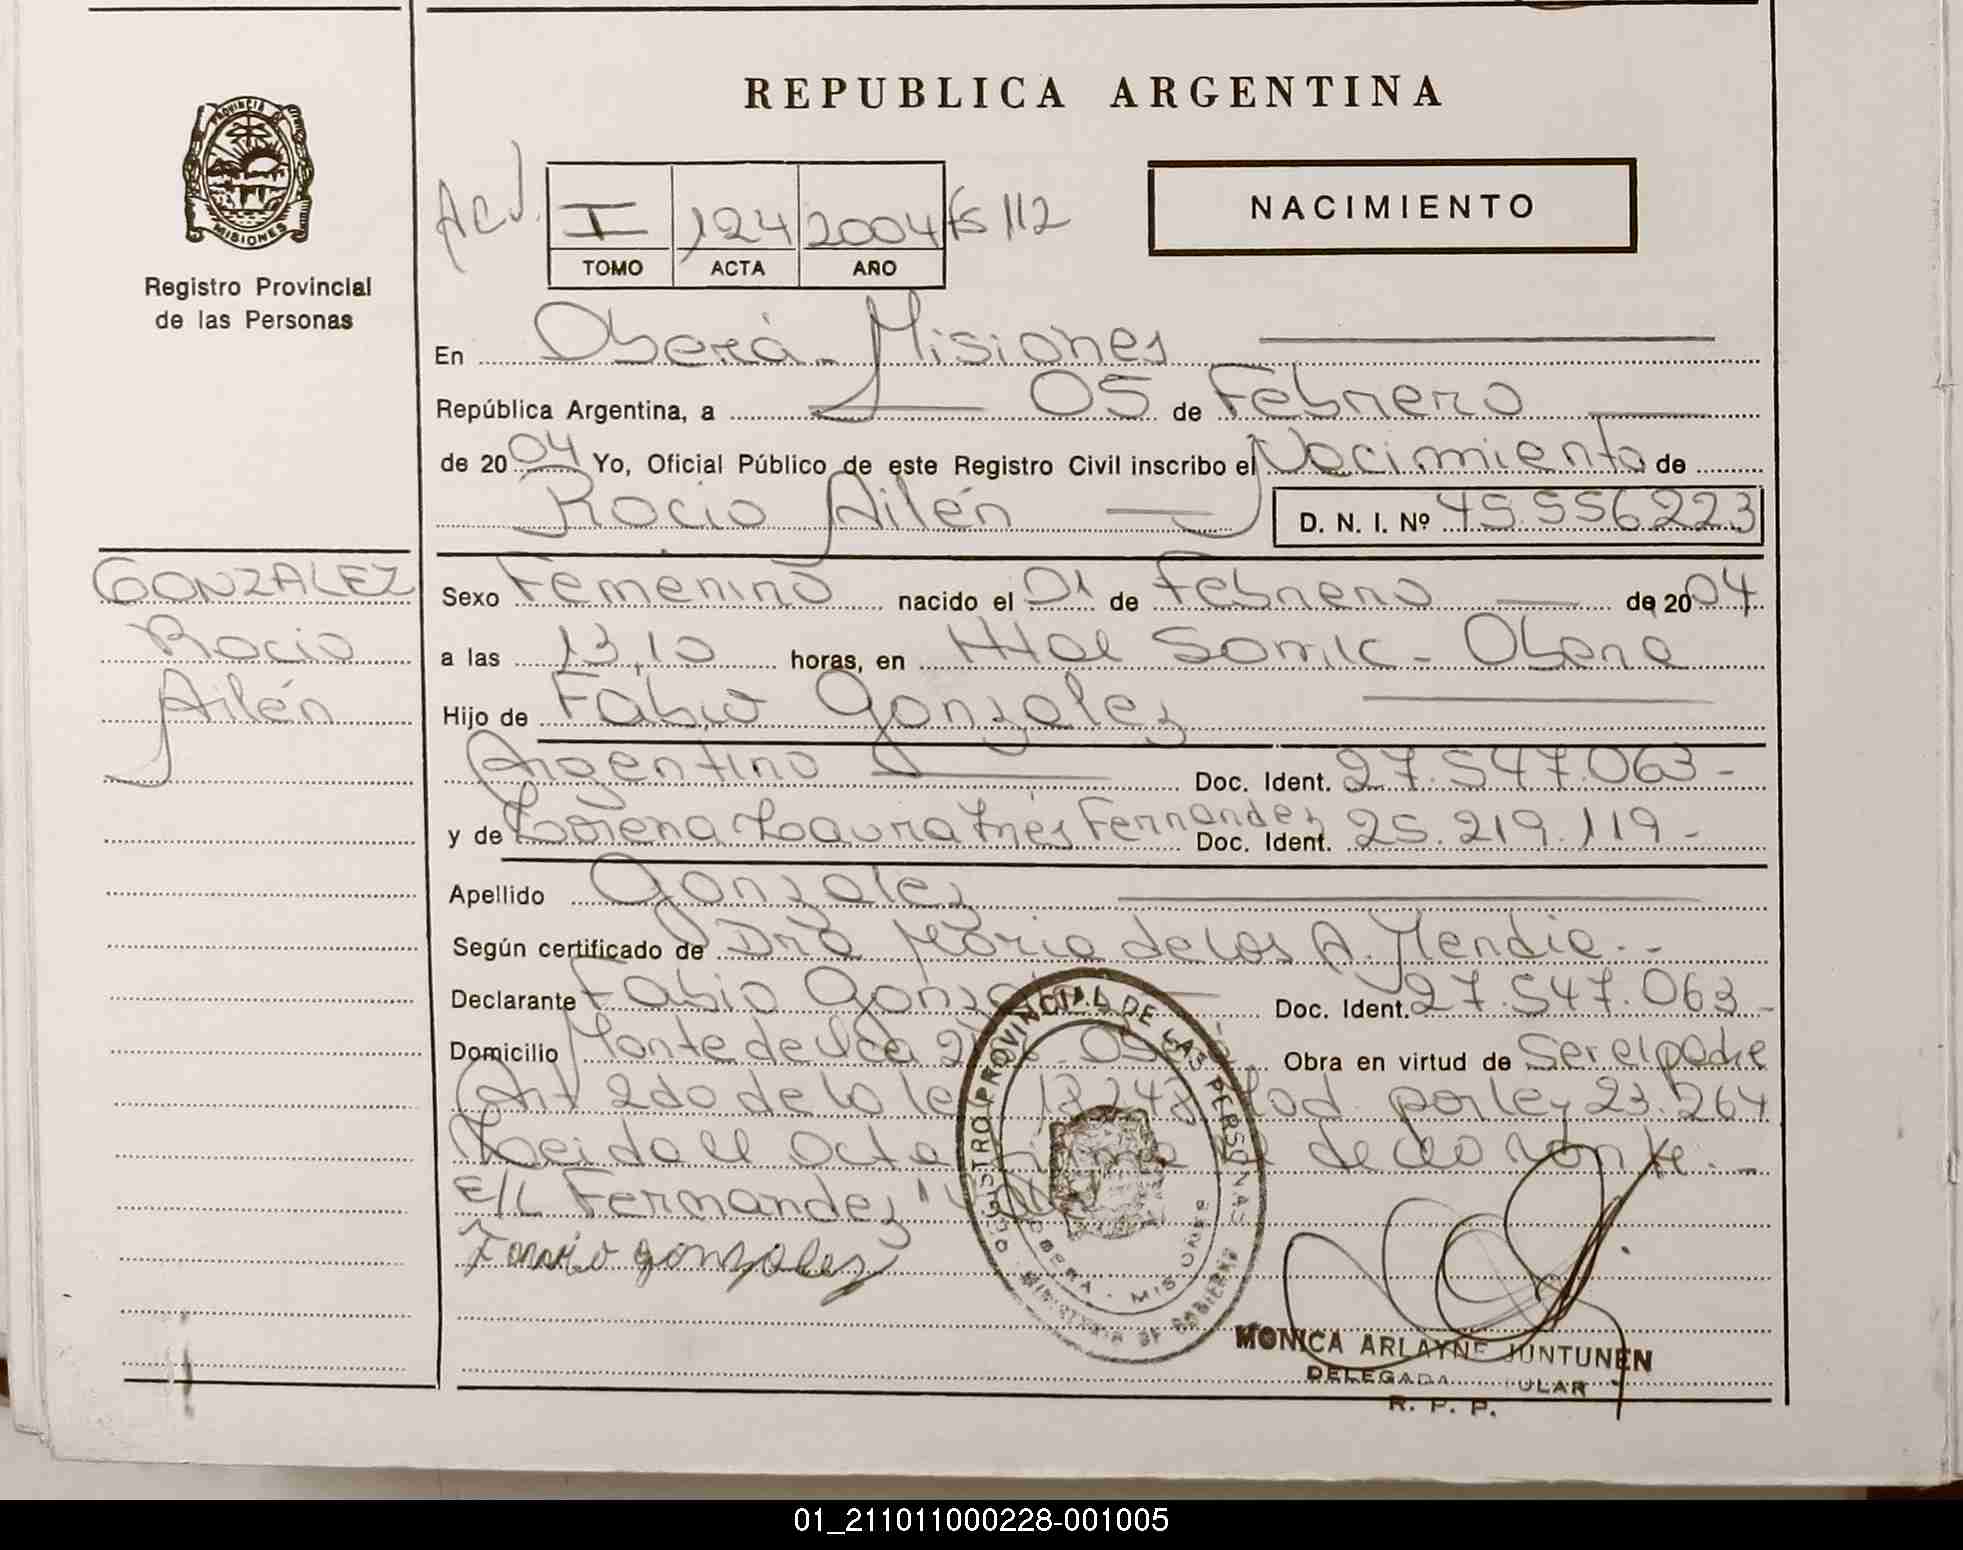 REPUBLICA ARGENTINA
PROVINCIA DE MISIONES
Registro Provincial
de las Personas
NACIMIENTO
I 124 2004 Fs 112
TOMO ACTA AÑO
En Oberá - Misiones
República Argentina, a 05 de Febrero
de 2004 Yo, Oficial Público de este Registro Civil inscribo el Nacimiento de
Rocio Ailén D. N. I. Nº 45.556223
GONZALEZ
Rocio
Ailén
Sexo Femenino nacido el 01 de Febrero de 2004
a las 13,10 horas, en Htal Samic - Obera
Hijo de Fabio Gonzalez
Argentino Doc. Ident. 27.547.063-
y de Lorena Laura Inés Fernandez Doc. Ident. 25.219.119-
Apellido Gonzalez
Según certificado de Dra Maria de los A. Mendie.-
Declarante Fabio Gonzalez Doc. Ident. 27.547.063-
Domicilio Monte de Obra en virtud de Ser el padre
Art 2do de la ley Mod. por ley 23.264
Leida el acta de declarante.-
E/L Fernandez
gonzalez
REGISTRO PROVINCIAL DE LAS PERSONAS
OBERA - MISIONES
MINISTERIO DE GOBIERNO
MONICA ARLAYNE JUNTUNEN
DELEGADA TITULAR
R. P. P.
01_211011000228-001005